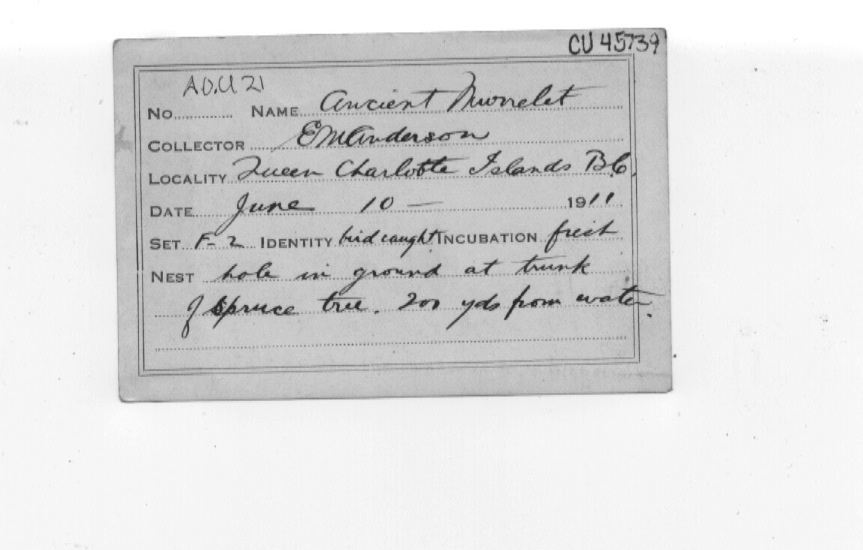 CU 45739
A.O.U 21
No. NAME Ancient Murrelet
COLLECTOR E M Anderson
LOCALITY Queen Charlotte Islands B.C.
DATE June 10 — 1911
SET F-2 IDENTITY bird caught INCUBATION fresh
NEST hole in ground at trunk
of Spruce tree. 200 yds from water.